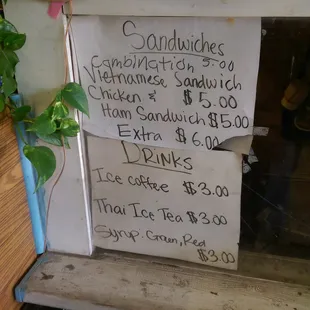 Sandwiches
Combination 5.00
Vietnamese Sandwich
Chicken & $5.00
Ham Sandwich $5.00
Extra $6.00
DRINKS
Ice coffee $3.00
Thai Ice Tea $3.00
Syrup. Green, Red
$3.00